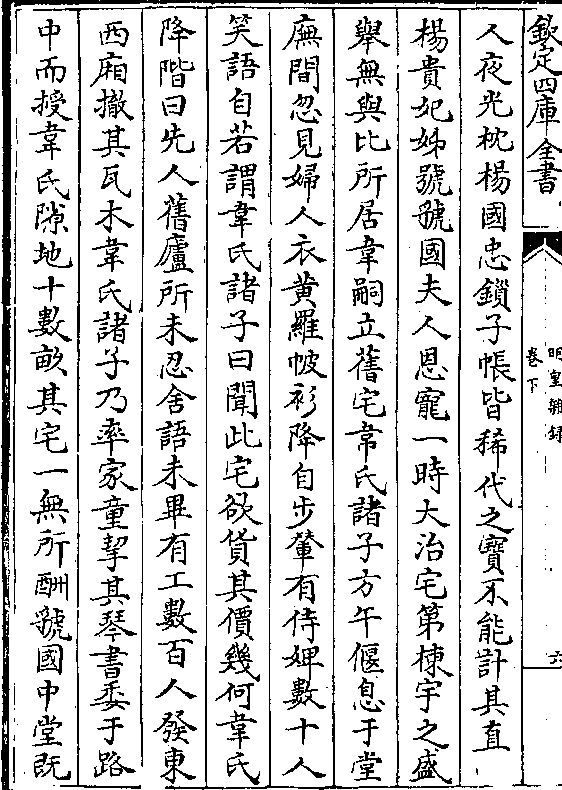 欽定四庫全書
明皇雜録
卷下
六
人夜光枕楊國忠鎖子帳皆稀代之寶不能計其直
楊貴妃姊號虢國夫人恩寵一時大治宅第棟宇之盛
舉無與比所居韋嗣立舊宅韋氏諸子方午偃息于堂
廡間忽見婦人衣黄羅帔衫降自步輦有侍婢數十人
笑語自若謂韋氏諸子曰聞此宅欲貨其價幾何韋氏
降階曰先人舊廬所未忍舍語未畢有工數百人發東
西廂撤其瓦木韋氏諸子乃率家童挈其琴書委于路
中而授韋氏隙地十數畝其宅一無所酬虢國中堂既